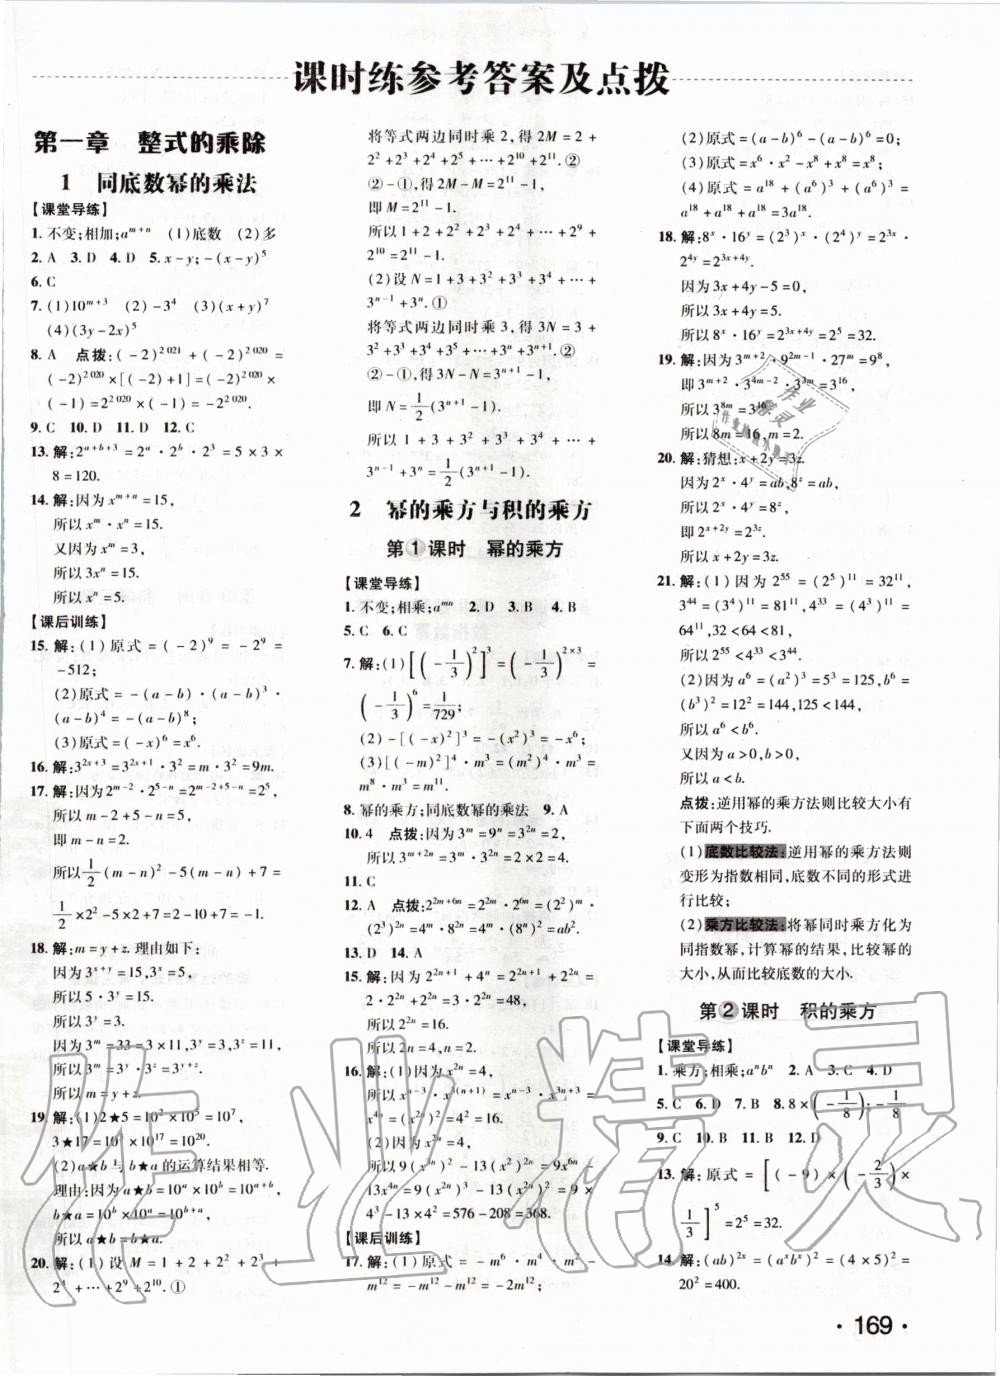 课时练参考答案及点拨
第一章 整式的乘除
1 同底数幂的乘法
【课堂导练】
1. 不变;相加;a^{m+n} (1)底数 (2)多
2. A 3. D 4. D 5. x-y;-(x-y)^5
6. C
7. (1)10^{m+3} (2)-3^4 (3)(x+y)^7
(4)(3y-2x)^5
8. A 点拨:(-2)^{2 021}+(-2)^{2 020}=
(-2)^{2 020}×[(-2)+1]=(-2)^{2 020}×
(-1)=2^{2 020}×(-1)=-2^{2 020}.
9. C 10. D 11. D 12. C
13. 解:2^{a+b+3}=2^a·2^b·2^3=5×3×
8=120.
14. 解:因为x^{m+n}=15,
所以x^m·x^n=15.
又因为x^m=3,
所以3x^n=15.
所以x^n=5.
【课后训练】
15. 解:(1)原式=(-2)^9=-2^9=
-512;
(2)原式=-(a-b)·(a-b)^3·
(a-b)^4=-(a-b)^8;
(3)原式=(-x)^6=x^6.
16. 解:3^{2x+3}=3^{2x+1}·3^2=m·9=9m.
17. 解:因为2^{m-2}·2^{5-n}=2^{m-2+5-n}=2^5,
所以m-2+5-n=5,
即m-n=2.
所以\frac{1}{2}(m-n)^2-5(m-n)+7=
\frac{1}{2}×2^2-5×2+7=2-10+7=-1.
18. 解:m=y+z. 理由如下:
因为3^{x+y}=15,3^x=5,
所以5·3^y=15.
所以3^y=3.
因为3^m=33=3×11,3^y=3,3^z=11,
所以3^m=3^y·3^z=3^{y+z}.
所以m=y+z.
19. 解:(1)2★5=10^2×10^5=10^7,
3★17=10^3×10^{17}=10^{20}.
(2)a★b与b★a的运算结果相等.
理由:因为a★b=10^a×10^b=10^{a+b},
b★a=10^b×10^a=10^{b+a},
所以a★b=b★a.
20. 解:(1)设M=1+2+2^2+2^3+
2^4+…+2^9+2^{10}.①
将等式两边同时乘2,得2M=2+
2^2+2^3+2^4+2^5+…+2^{10}+2^{11}.②
②-①,得2M-M=2^{11}-1,
即M=2^{11}-1.
所以1+2+2^2+2^3+2^4+…+2^9+
2^{10}=2^{11}-1.
(2)设N=1+3+3^2+3^3+3^4+…+
3^{n-1}+3^n.①
将等式两边同时乘3,得3N=3+
3^2+3^3+3^4+3^5+…+3^n+3^{n+1}.②
②-①,得3N-N=3^{n+1}-1,
即N=\frac{1}{2}(3^{n+1}-1).
所以1+3+3^2+3^3+3^4+…+
3^{n-1}+3^n=\frac{1}{2}(3^{n+1}-1).
2 幂的乘方与积的乘方
第1课时 幂的乘方
【课堂导练】
1. 不变;相乘;a^{mn} 2. D 3. B 4. B
5. C 6. C
7. 解:(1)[(-\frac{1}{3})^2]^3=(-\frac{1}{3})^{2×3}=
(-\frac{1}{3})^6=\frac{1}{729};
(2)-[(-x)^2]^3=-(x^2)^3=-x^6;
(3)[(-m)^2]^4·m^3=(m^2)^4·m^3=
m^8·m^3=m^{11}.
8. 幂的乘方;同底数幂的乘法 9. A
10. 4 点拨:因为3^m=9^n=3^{2n}=2,
所以3^{m+2n}=3^m·3^{2n}=2×2=4.
11. C
12. A 点拨:2^{2m+6n}=2^{2m}·2^{6n}=(2^2)^m·
(2^3)^{2n}=4^m·8^{2n}=4^m·(8^n)^2=ab^2.
13. D 14. A
15. 解:因为2^{2n+1}+4^n=2^{2n+1}+2^{2n}=
2·2^{2n}+2^{2n}=3×2^{2n}=48,
所以2^{2n}=16.
所以2^{2n}=2^4,
所以2n=4,n=2.
16. 解:(1)因为x^{2n}=4,
所以x^{n-3}·x^{3(n+1)}=x^{n-3}·x^{3n+3}=
x^{4n}=(x^{2n})^2=4^2=16.
(2)因为x^{2n}=4,
所以9(x^{3n})^2-13(x^2)^{2n}=9x^{6n}-
13x^{4n}=9(x^{2n})^3-13(x^{2n})^2=9×
4^3-13×4^2=576-208=368.
【课后训练】
17. 解:(1)原式=-m^6·m^6-m^{12}=
-m^{12}-m^{12}=-2m^{12};
(2)原式=(a-b)^6-(a-b)^6=0;
(3)原式=x^6·x^2-x^8=x^8-x^8=0;
(4)原式=a^{18}+(a^6)^3+(a^9)^2=
a^{18}+a^{18}+a^{18}=3a^{18}.
18. 解:8^x·16^y=(2^3)^x·(2^4)^y=2^{3x}·
2^{4y}=2^{3x+4y}.
因为3x+4y-5=0,
所以3x+4y=5.
所以8^x·16^y=2^{3x+4y}=2^5=32.
19. 解:因为3^{m+2}·9^{2m-1}·27^m=9^8,
即3^{m+2}·3^{4m-2}·3^{3m}=3^{16},
所以3^{8m}=3^{16}.
所以8m=16,m=2.
20. 解:猜想:x+2y=3z.
因为2^x·4^y=ab,8^z=ab,
所以2^x·4^y=8^z,
即2^{x+2y}=2^{3z}.
所以x+2y=3z.
21. 解:(1)因为2^{55}=(2^5)^{11}=32^{11},
3^{44}=(3^4)^{11}=81^{11},4^{33}=(4^3)^{11}=
64^{11},32<64<81,
所以2^{55}<4^{33}<3^{44}.
(2)因为a^6=(a^2)^3=5^3=125,b^6=
(b^3)^2=12^2=144,125<144,
所以a^6<b^6.
又因为a>0,b>0,
所以a<b.
点拨:逆用幂的乘方法则比较大小有
下面两个技巧.
(1)底数比较法:逆用幂的乘方法则
变形为指数相同,底数不同的形式进
行比较;
(2)乘方比较法:将幂同时乘方化为
同指数幂,计算幂的结果,比较幂的
大小,从而比较底数的大小.
第2课时 积的乘方
【课堂导练】
1. 乘方;相乘;a^nb^n 2. A 3. C 4. D
5. C 6. D 7. B 8. 8×(-\frac{1}{8});-\frac{1}{8}
9. C 10. B 11. B 12. D
13. 解:原式=[(-9)×(-\frac{2}{3})×
\frac{1}{3}]^5=2^5=32.
14. 解:(ab)^{2x}=(a^xb^x)^2=(4×5)^2=
20^2=400.
·169·
作业精灵